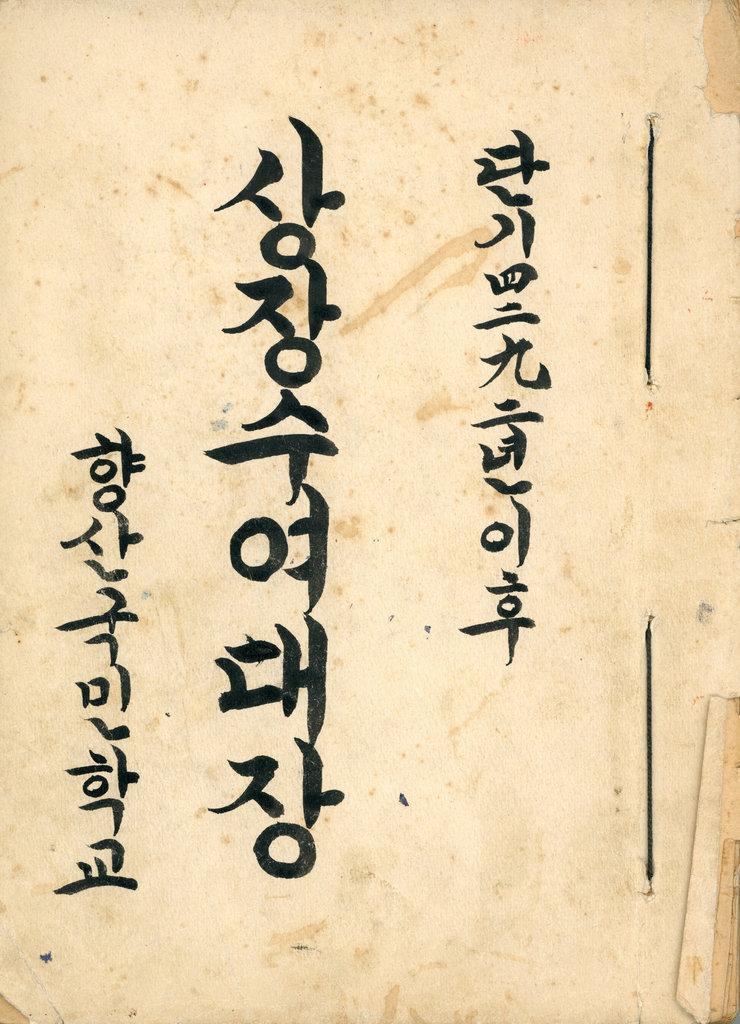 단기四二九二년이후
상장수여대장
향산국민학교